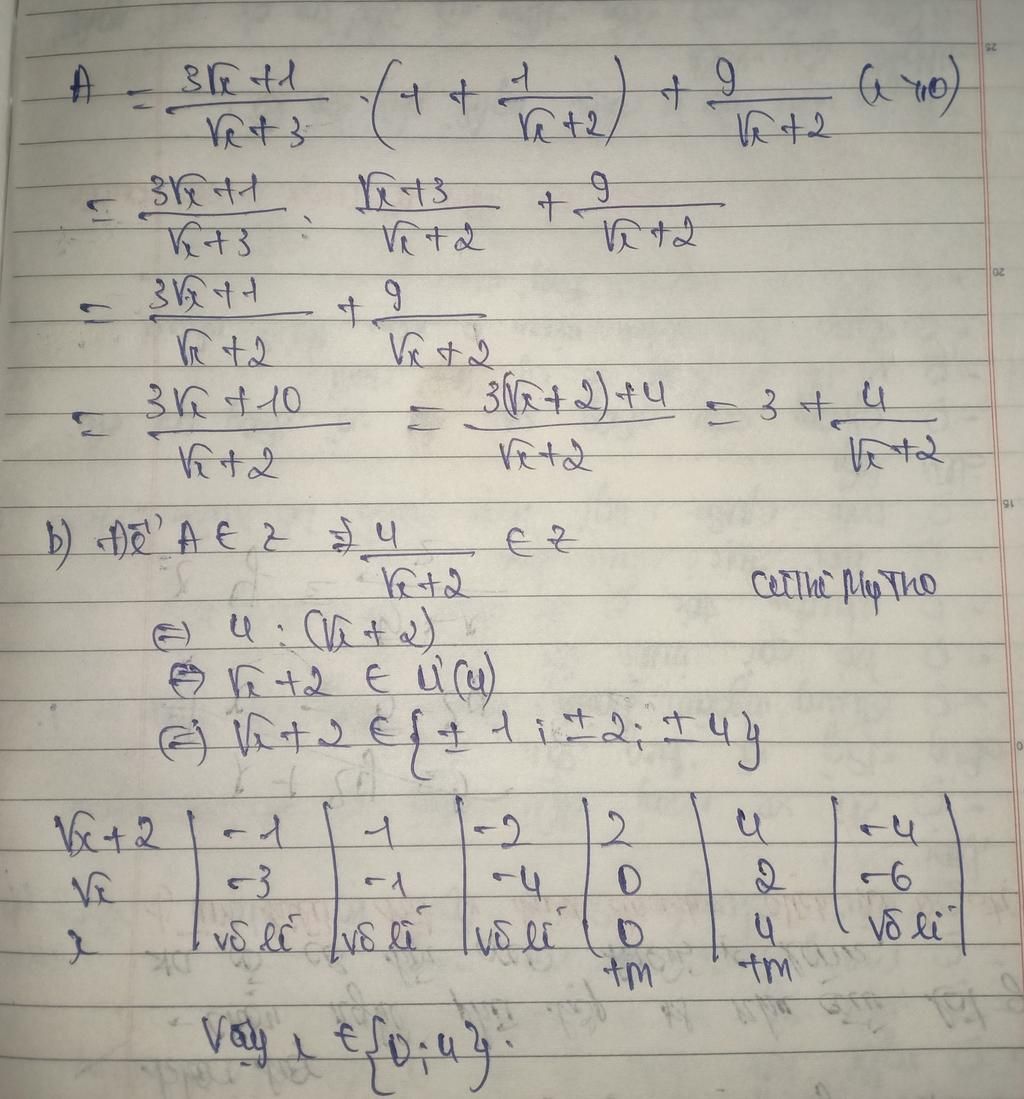 A = \frac{3\sqrt{x}+1}{\sqrt{x}+3} \cdot \left(1 + \frac{1}{\sqrt{x}+2}\right) + \frac{9}{\sqrt{x}+2} (x ≥ 0)
= \frac{3\sqrt{x}+1}{\sqrt{x}+3} \cdot \frac{\sqrt{x}+3}{\sqrt{x}+2} + \frac{9}{\sqrt{x}+2}
= \frac{3\sqrt{x}+1}{\sqrt{x}+2} + \frac{9}{\sqrt{x}+2}
= \frac{3\sqrt{x}+10}{\sqrt{x}+2} = \frac{3(\sqrt{x}+2)+4}{\sqrt{x}+2} = 3 + \frac{4}{\sqrt{x}+2}
b) Để A ∈ Z ⇒ \frac{4}{\sqrt{x}+2} ∈ Z
⇔ 4 ⋮ (√x + 2)
⇔ √x + 2 ∈ Ư(4)
⇔ √x + 2 ∈ {±1; ±2; ±4}
√x + 2 | -1 | 1 | -2 | 2 | 4 | -4
√x | -3 | -1 | -4 | 0 | 2 | -6
x | vô lí | vô lí | vô lí | 0 | 4 | vô lí
tm tm
Vậy x ∈ {0; 4}.